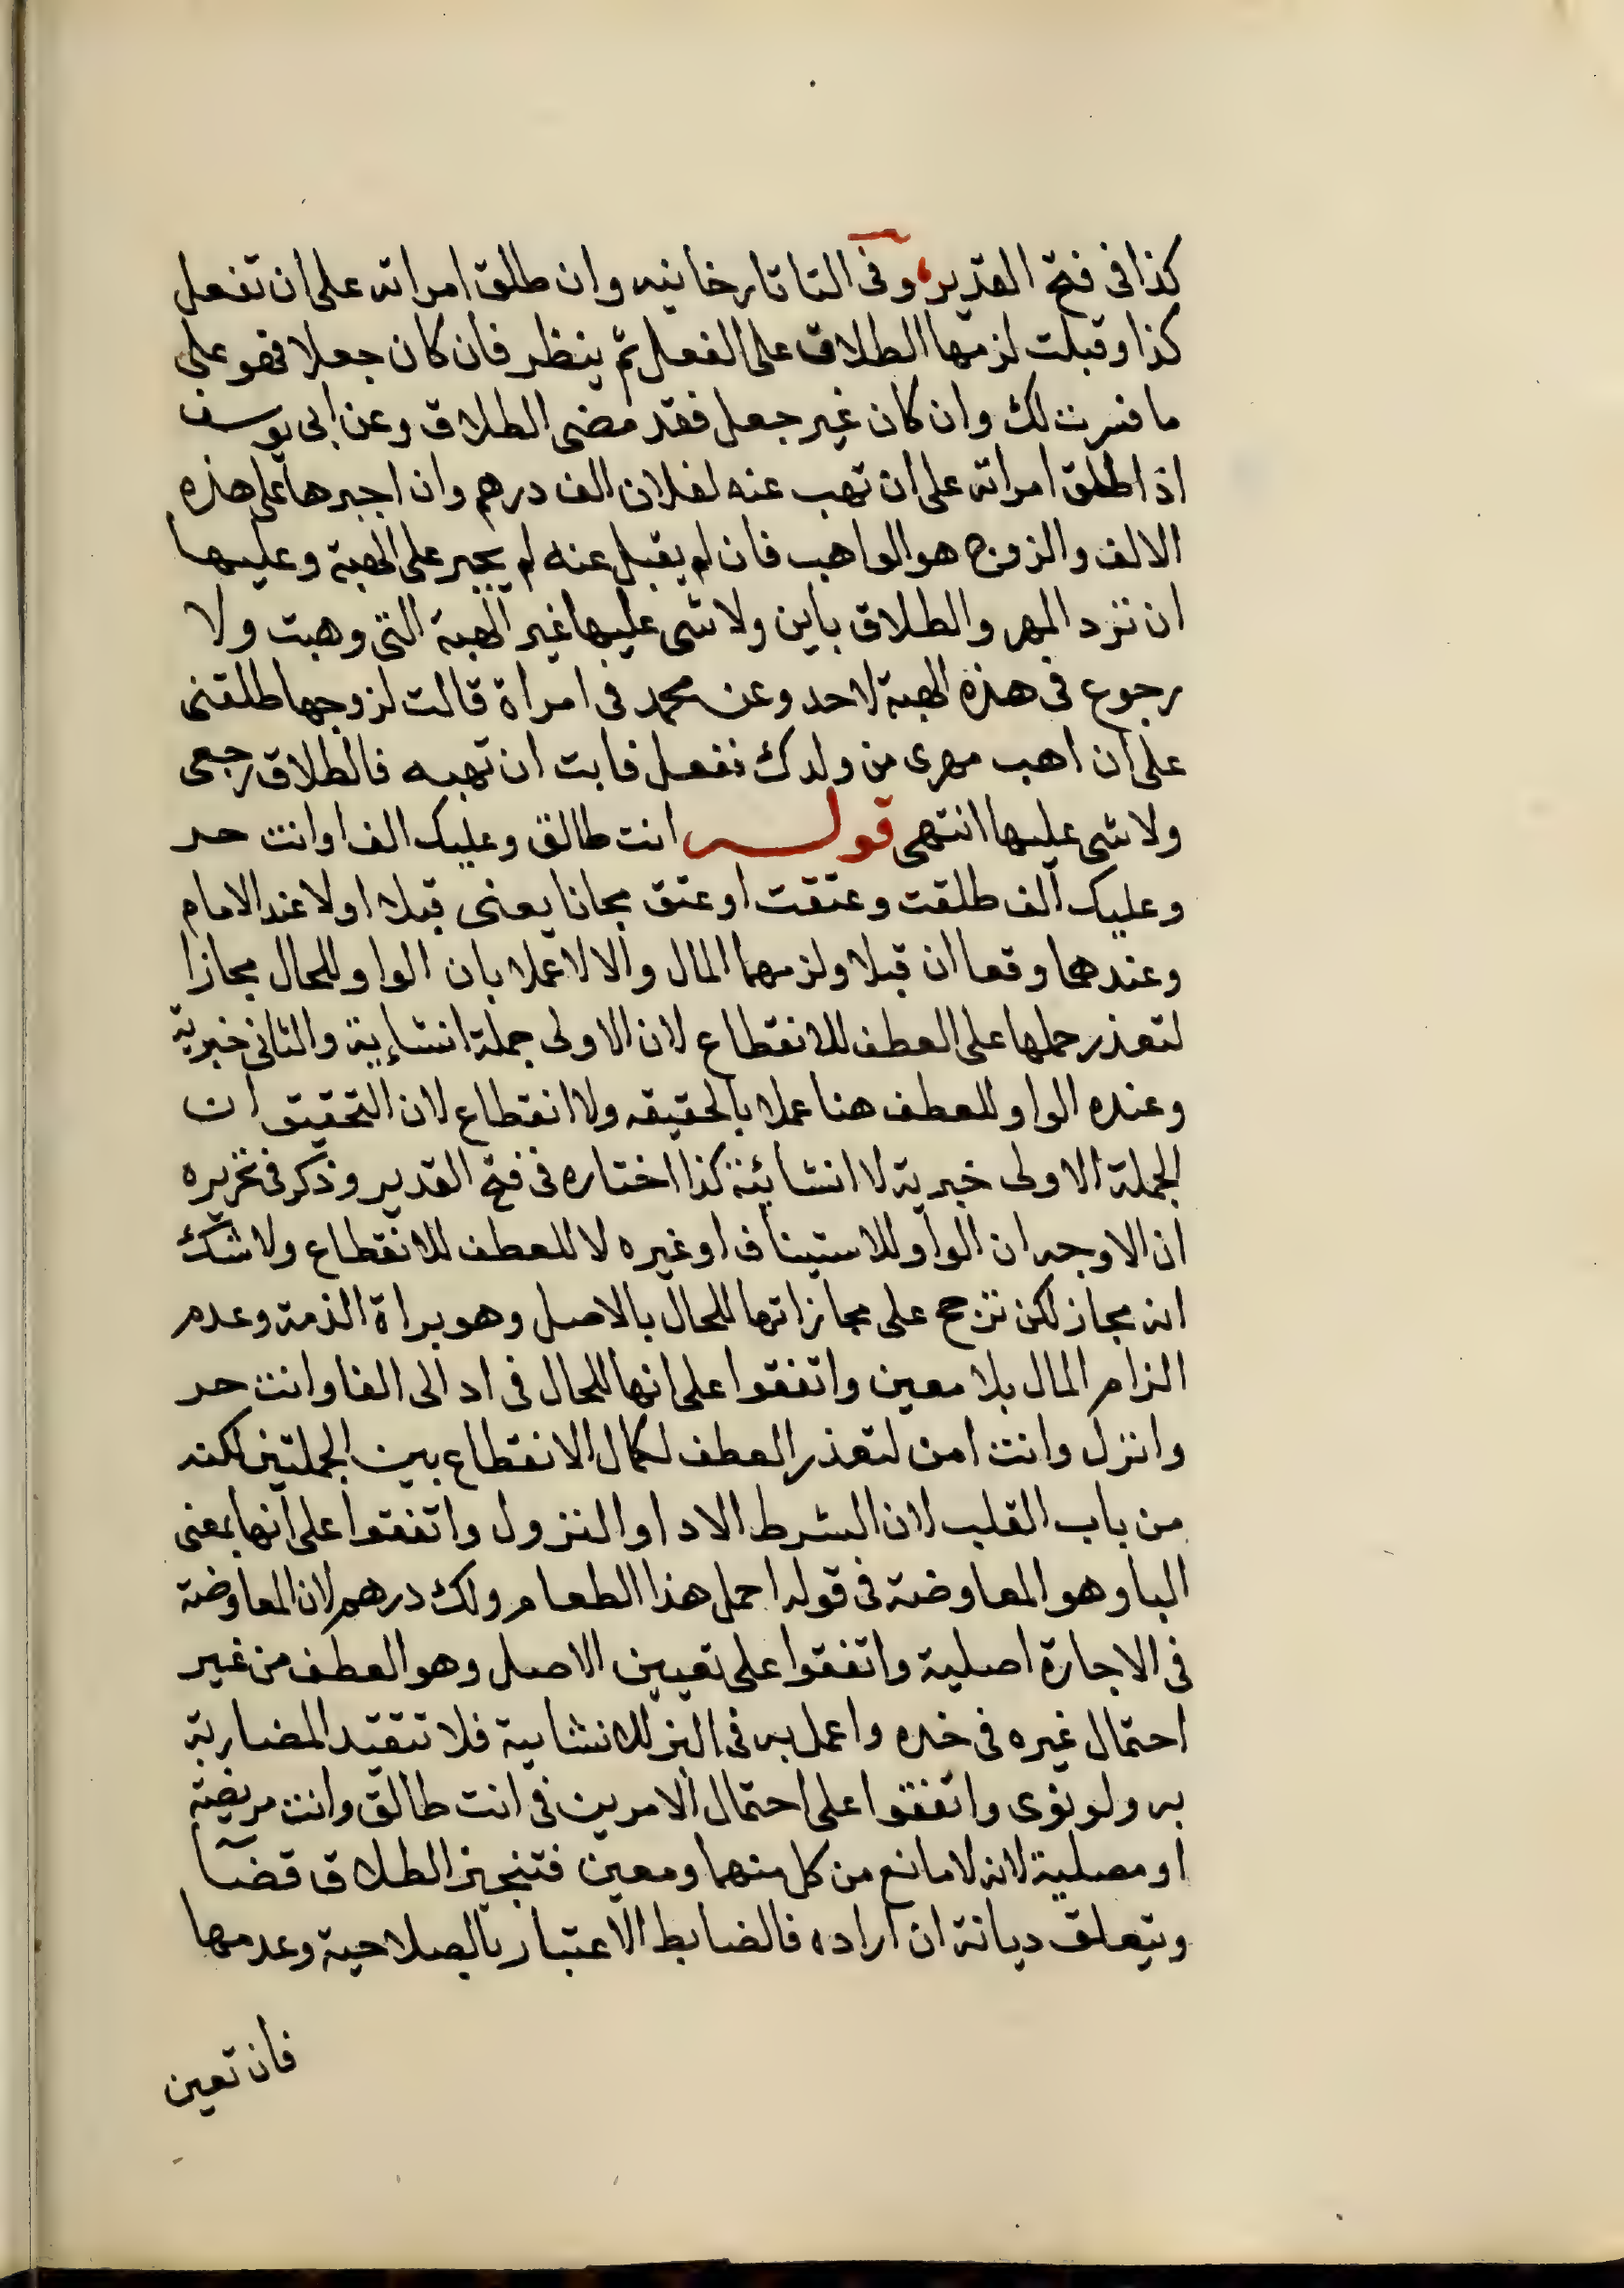 كذا فى فتح القدير، وفى التاتارخانيه وان طلق امراته على ان تفعل
كذا وقبلت لزمها الطلاق على الفعل ثم ينظر فان كان جعلا فهو على
ما فسرت لك وان كان غير جعل فقد مضى الطلاق وعن ابى يوسف
اذا طلق امراته على ان تهب عنه لفلان الف درهم وان اجبرها على هذه
الالف والزوج هو الواهب فان لم يقبل عنه لم يجبر على الهبة وعليها
ان ترد المهر والطلاق باين ولا شى عليها غير الهبة التى وهبت ولا
رجوع فى هذه الهبة لاحد وعن محمد فى امراة قالت لزوجها طلقنى
على ان اهب مهرى من ولدك ففعل فابت ان تهبه فالطلاق رجعى
ولا شى عليها انتهى قوله انت طالق وعليك الف او انت حر
وعليك الف طلقت وعتقت او عتق مجانا يعنى قبلا اولا عند الامام
وعندهما وقعا ان قبلا ولزمهما المال والا لا عملا بان الواو للحال مجازا
لتعذر حملها على العطف للانقطاع لان الاولى جملة انشاءية والثانى خبرية
وعنده الواو للعطف هنا عملا بالحقيقه ولا انقطاع لان التحقيق ان
الجملة الاولى خبرية لا انشائية كذا اختاره فى فتح القدير وذكر فى تحريره
ان الاوجه ان الواو للاستيناف او غيره لا للعطف للانقطاع ولا شك
انه مجاز لكن ترجح على مجازاتها للحال بالاصل وهو براة الذمة وعدم
الزام المال بلا معين واتفقوا على انها للحال فى اد الى الفا وانت حر
وانزل وانت امن لتعذر العطف لكمال الانقطاع بين الجملتين لكنه
من باب القلب لان الشرط الادا والنزول واتفقوا على انها بمعنى
البا وهو المعاوضة فى قوله احمل هذا الطعام ولك درهم لان المعاوضة
فى الاجارة اصلية واتفقوا على تعيين الاصل وهو العطف من غير
احتمال غيره فى خذه واعمل به فى البز للانشايية فلا تتقيد المضاربة
به ولو نوى واتفقوا على احتمال الامرين فى انت طالق وانت مريضة
او مصلية لانه لا مانع من كل منهما ومعين فتنجيز الطلاق قضآ
ويتعلق ديانة ان اراده فالضابط الاعتبار بالصلاحية وعدمها
فان تعين